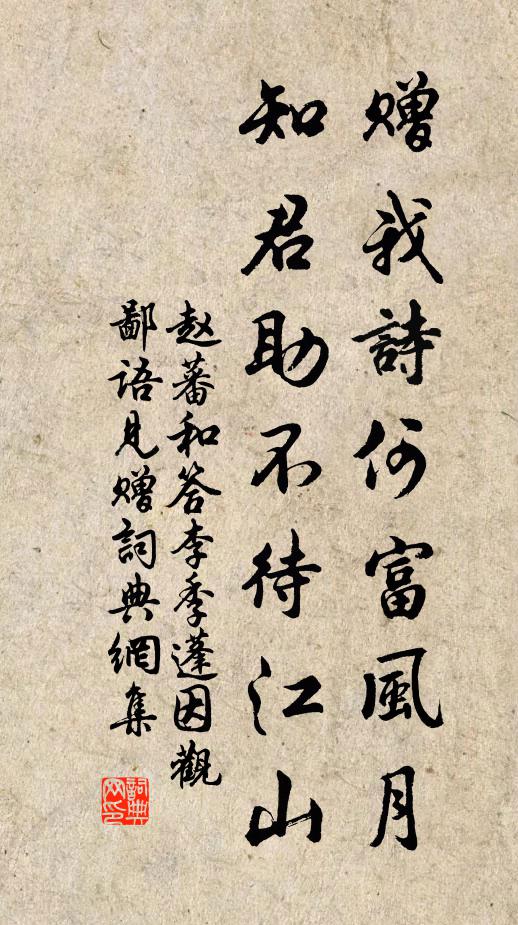 赠我詩何富風月
知君助不待江山
赵蕃和答李季蓬因觀
鄙语見赠詞典網集
詞典
网印